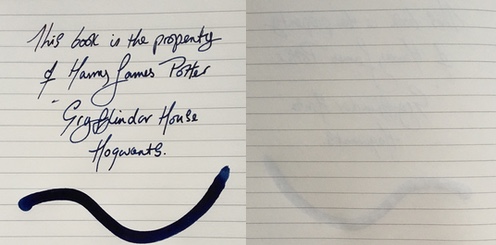 This book is the property
of Harry James Potter
Gryffindor House
Hogwarts.